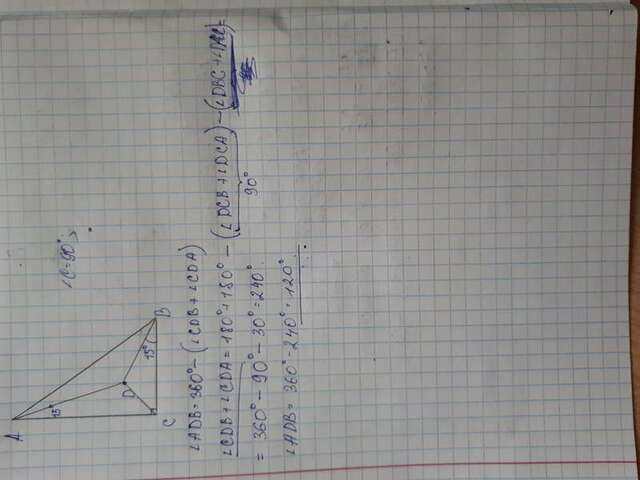 ∠C=90°
A
15°
D
15°
B
C
∠ADB=360°-(∠CDB+∠CDA)
∠CDB+∠CDA=180°+180°-(∠DCB+∠DCA)-(∠DBC+∠DAC)=
90°
=360°-90°-30°=240°
∠ADB=360°-240°=120°